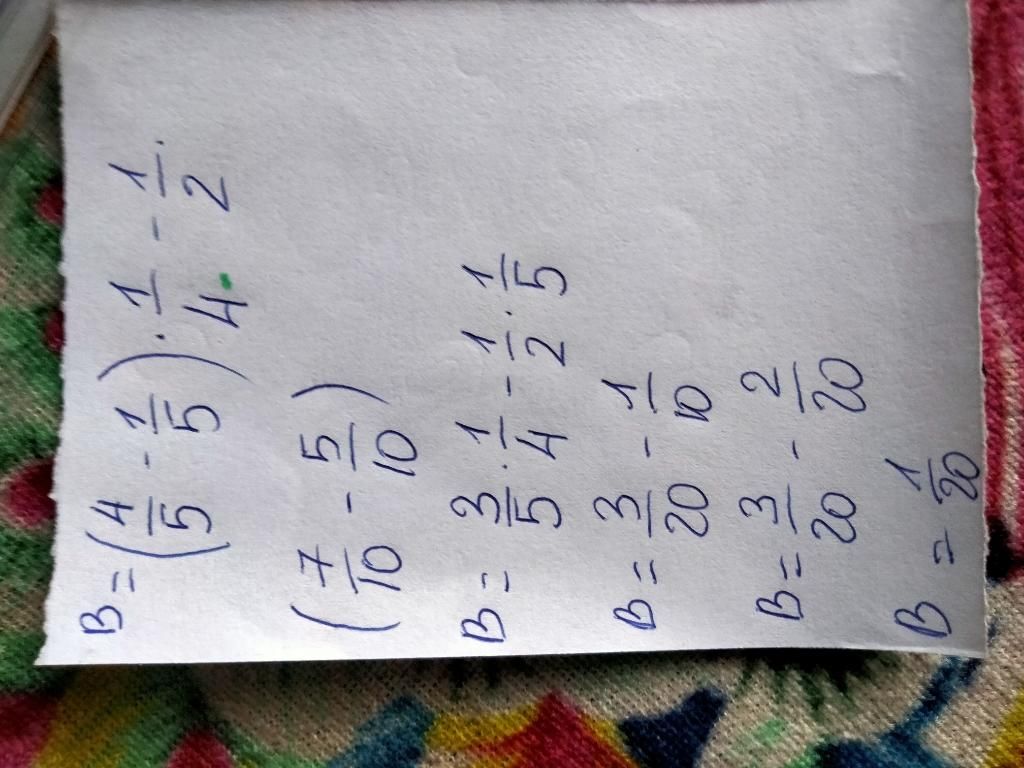 B = (4/5 - 1/5) · 1/4 - 1/2 ·
(7/10 - 5/10)
B = 3/5 · 1/4 - 1/2 · 1/5
B = 3/20 - 1/10
B = 3/20 - 2/20
B = 1/20